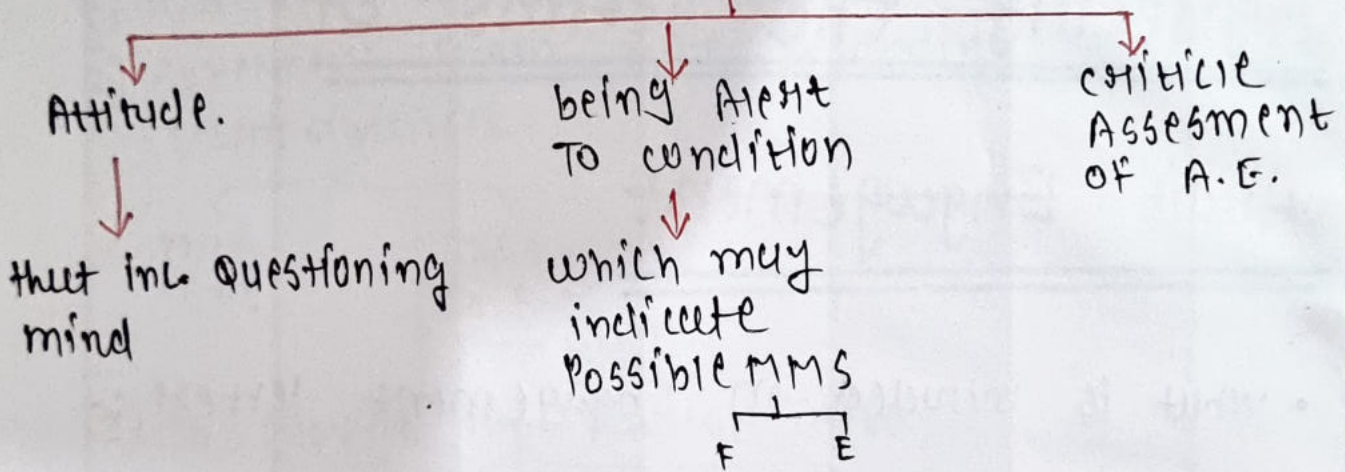 Attitude.
that inc. Questioning
mind
being Alert
To condition
which may
indicate
Possible MMS
F E
criticle
Assesment
of A.E.